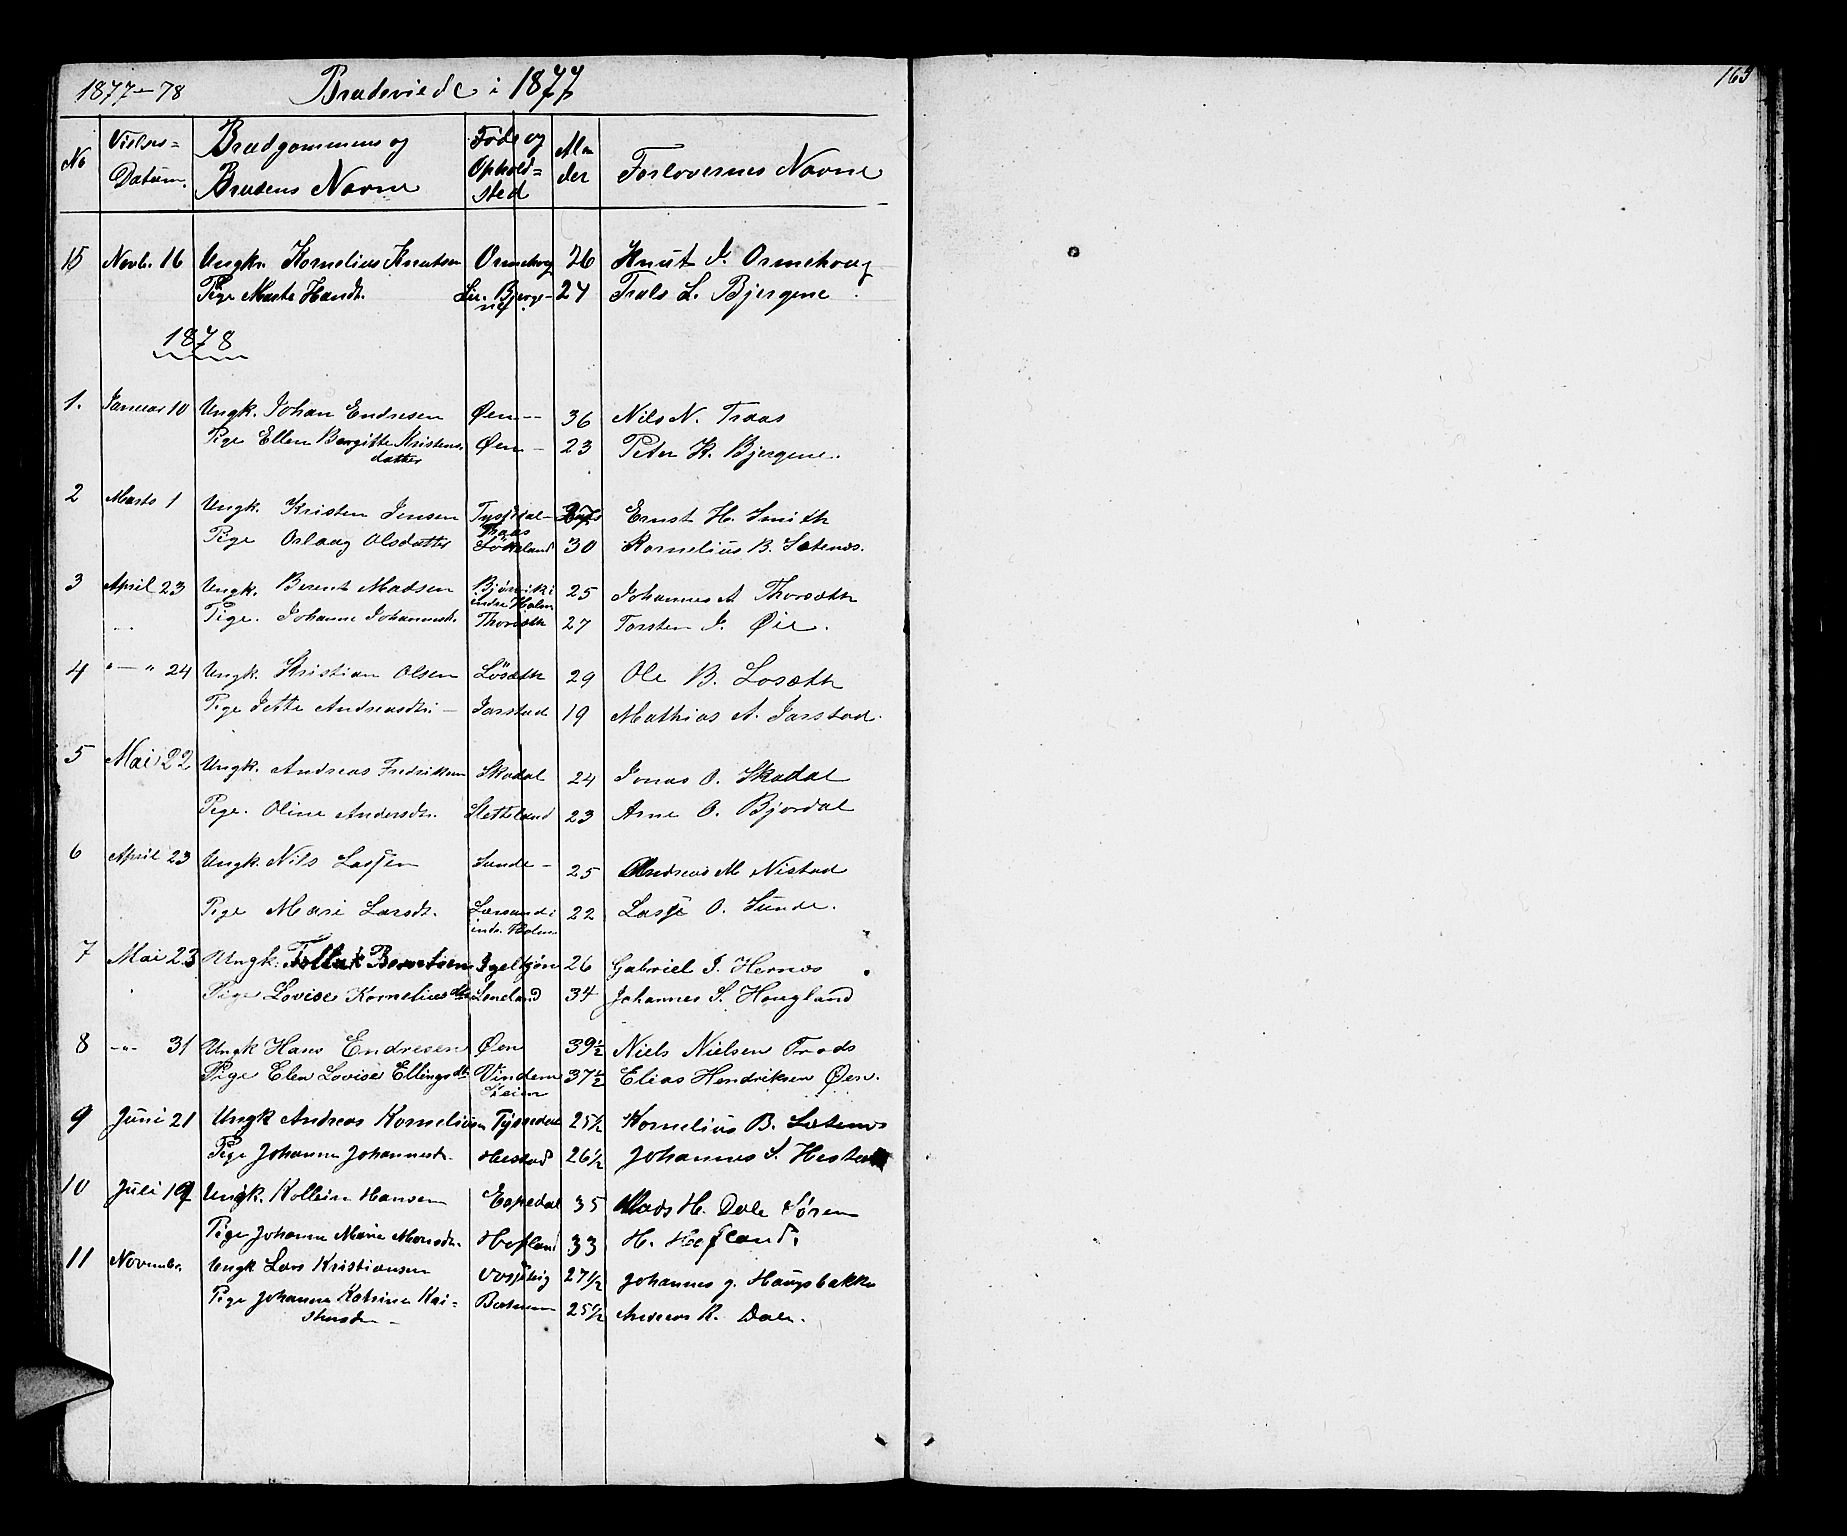 1877-78 Brudeviede i 1877 163
No Vielses= Datum. Brudgommens og Brudens Navne Føde og Ophold= sted Al= der Forlovernes Navne
15 Novb. 16 Ungk. Kornelius Knutsen Ormehoug 26 Knut J. Ormehoug
Pige Marte Hansdt. Bjerge- ne 24 Truls L. Bjergene
1878
1. Januar 10 Ungk. Johan Endresen Øen - - 36 Nils N. Traas
Pige Ellen Bergitte Kristens. datter Øen - 23 Peter K. Bjergene.
2 Marts 1 Ungk. Kristen Jensen Ernst H. Smith
Pige Oslaug Olsdatter 30 Kornelius B. Sætenes.
3 April 23 Ungk. Berent Madsen Bjørvik i indre Holm 25 Johannes A Thorsæth
Pige. Johanne Johannesdt. Thorsæth 27 Torsten J. Øie.
4 " — " 24 Ungk. Kristian Olsen Løsæth 29 Ole B. Losæth
Pige Jette Andreasdtr — Jarstad 19 Mathias A. Jarstad.
5 Mai 22 Ungk. Andreas Fredriksen Skadal 24 Jonas O. Skadal
Pige. Oline Andersdtr. Sletteland 23 Arne O. Bjordal
6 April 23 Ungk. Nils Lassen Sunde - 25 Andreas M Nistad
Pige Mari Larsdt. indr. Holm 22 Lasse O. Sunde.
7 Mai 23 Ungk. Tollak Berentsen Igeltjøn 26 Gabriel J. Hernæs
Pige Lovise Kornelius dtr Leneland 34 Johannes S. Hougland
8 -"- 31 Ungk Hans Endresen Øen 39½ Niels Nielsen Traas
Pige Elen Lovise Ellings dtr Vindem 37½ Elias Hendriksen Øen.
9 Juni 21 Ungk Andreas Kornelius Tyssedal 25½ Kornelius B. Sætenes
Pige Johanne Johannesdt. Hestad 26½ Johannes S. Hestad
10 Juli 19 Ungk. Kolbein Hansen Espedal 35 Mads H. Dale Søren
Pige Johanne Marie Monsdtr. Hofland 33 H. Hofland.
11 Novembr. Ungk Lars Kristiansen 27½ Johannes J. Haugsbakke
Pige Johanne Katrine Kri= stensdtr - 25½ Andreas R. Dale.